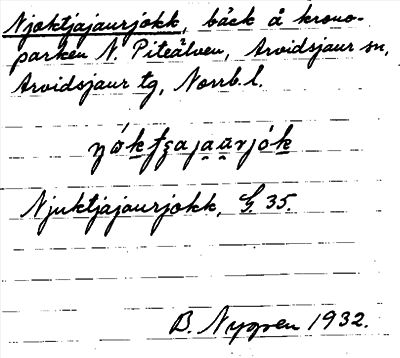 Njoktjajaurjokk, bäck å krono-
parken N. Piteälven, Arvidsjaur sn,
Arvidsjaur tg, Norrb. l.
Njuktjajaurjokk, G. 35.
B. Nygren 1932.